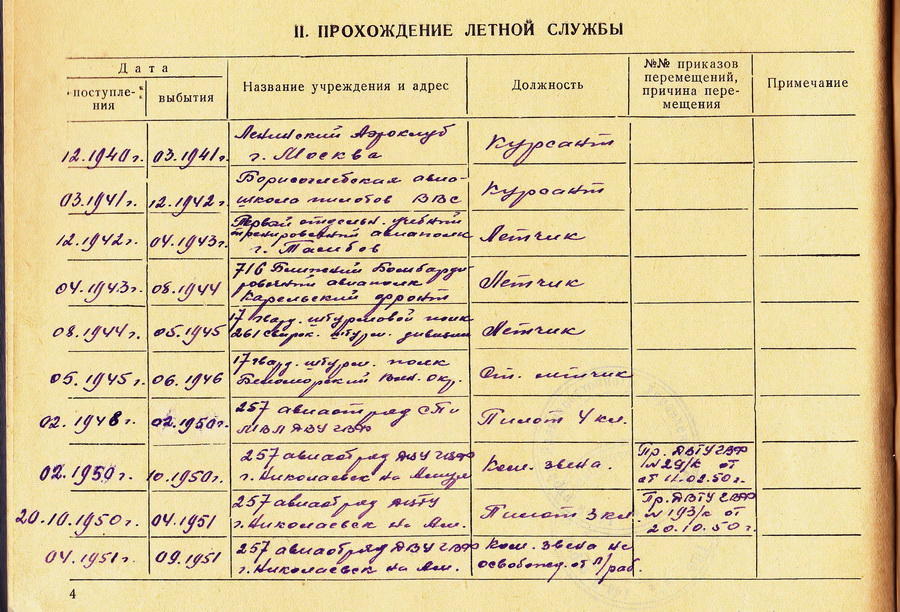 II. ПРОХОЖДЕНИЕ ЛЕТНОЙ СЛУЖБЫ
Дата
поступле-
ния
выбытия
Название учреждения и адрес
Должность
№№ приказов
перемещений,
причина пере-
мещения
Примечание
12.1940г. 03.1941г. Ленинский Аэроклуб
г. Москва
Курсант
03.1941г. 12.1942г. Борисоглебская авиа-
школа пилотов ВВС
Курсант
12.1942г. 04.1943г. Первый отдельн. учебный
тренировочный авиаполк
г. Тамбов
Летчик
04.1943г. 08.1944 716 Ближний Бомбарди
ровочный авиаполк
Карельский фронт
Летчик
08.1944г. 05.1945 17 гвард. штурмовой полк
261 штурм. дивизии
Летчик
05.1945г. 06.1946 17 гвард. штурм. полк
Беломорский Вен. окр.
Ст. летчик
02.1948г. 02.1950г. 257 авиаотряд СП и
МВЛ ДВУ ГВФ
Пилот 4 кл.
02.1950г. 10.1950г. 257 авиаотряд ДВУ ГВФ
г. Николаевск на Амуре
Ком. звена.
Пр. ДВТУ ГВФ
№ 29/к от
от 11.02.50г.
20.10.1950г. 04.1951 257 авиаотряд ДВТУ
г. Николаевск на Ам.
Пилот 3 кл.
Пр. ДВТУ ГВФ
№ 193/к от
20.10.50г.
04.1951г. 09.1951 257 авиаотряд ДВУ ГВФ
г. Николаевск на Ам.
Ком. звена не
освобожд. от п/раб.
4